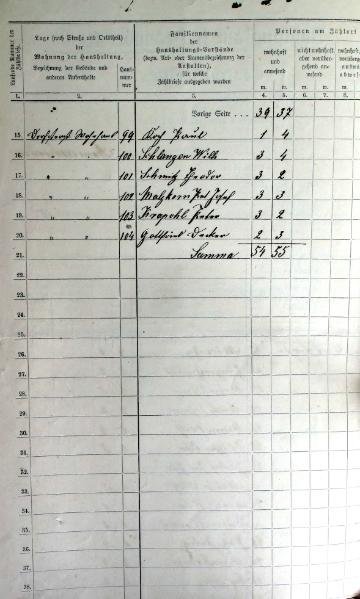 Laufende Nummer der Zählbriefe.
Lage (nach Straße und Ortsteil) der Wohnung der Haushaltung, Bezeichnung der Gebäude und anderen Aufenthalte
Haus-nummer
Familiennamen der Haushaltungs-Vorstände (bezw. An- oder Namenbezeichnung der Anstalten), für welche Zählbriefe ausgegeben wurden
Personen am Zählort
wohnhaft und anwesend
m. w. m. w. m.
1. 2. 3. 4. 5. 6. 7. 8.
Vorige Seite . . . 39 37
15 99 Paul 1 4
16. " " 100 Schlangen Wilh 3 4
17. " " 101 Schmitz Theodor 3 2
18. " " 102 Josef 3 3
19. " " 103 Peter 3 2
20. " " 104 Gottfried Decker 2 3
21. Summa 54 55
22.
23.
24.
25.
26.
27.
28.
29.
30.
31.
32.
33.
34.
35.
36.
37.
38.